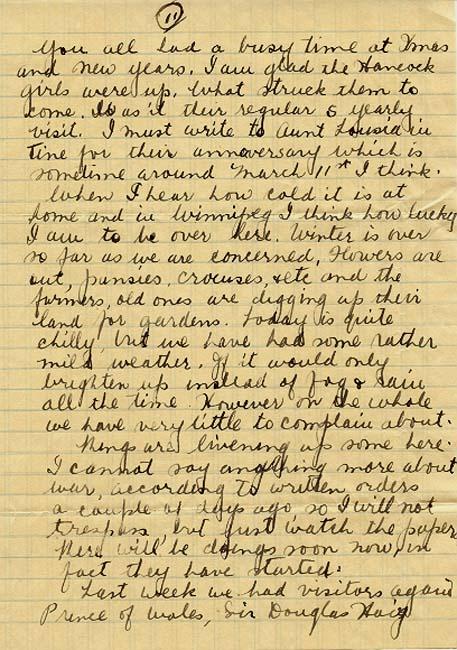 11
You all had a busy time at Xmas
and New Years. I am glad the Hancock
girls were up. What struck them to
come. Is it their regular 5 yearly
visit. I must write to Aunt Lousia in
time for their anniversary which is
sometime around March 11th I think.
When I hear how cold it is at
home and in Winnipeg I think how lucky
I am to be over here. Winter is over
so far as we are concerned, Flowers are
out, pansies, crocuses, etc and the
farmers, old ones are digging up their
land for gardens. Today is quite
chilly, but we have had some rather
mild weather. If it would only
brighten up instead of fog & rain
all the time. However on the whole
we have very little to complain about.
Things are livening up some here.
I cannot say anything more about
war, according to written orders
a couple of days ago, so I will not
trespass, but just watch the papers
There will be doings soon now, in
fact they have started.
Last week we had visitors again
Prince of Wales, Sir Douglas Haig